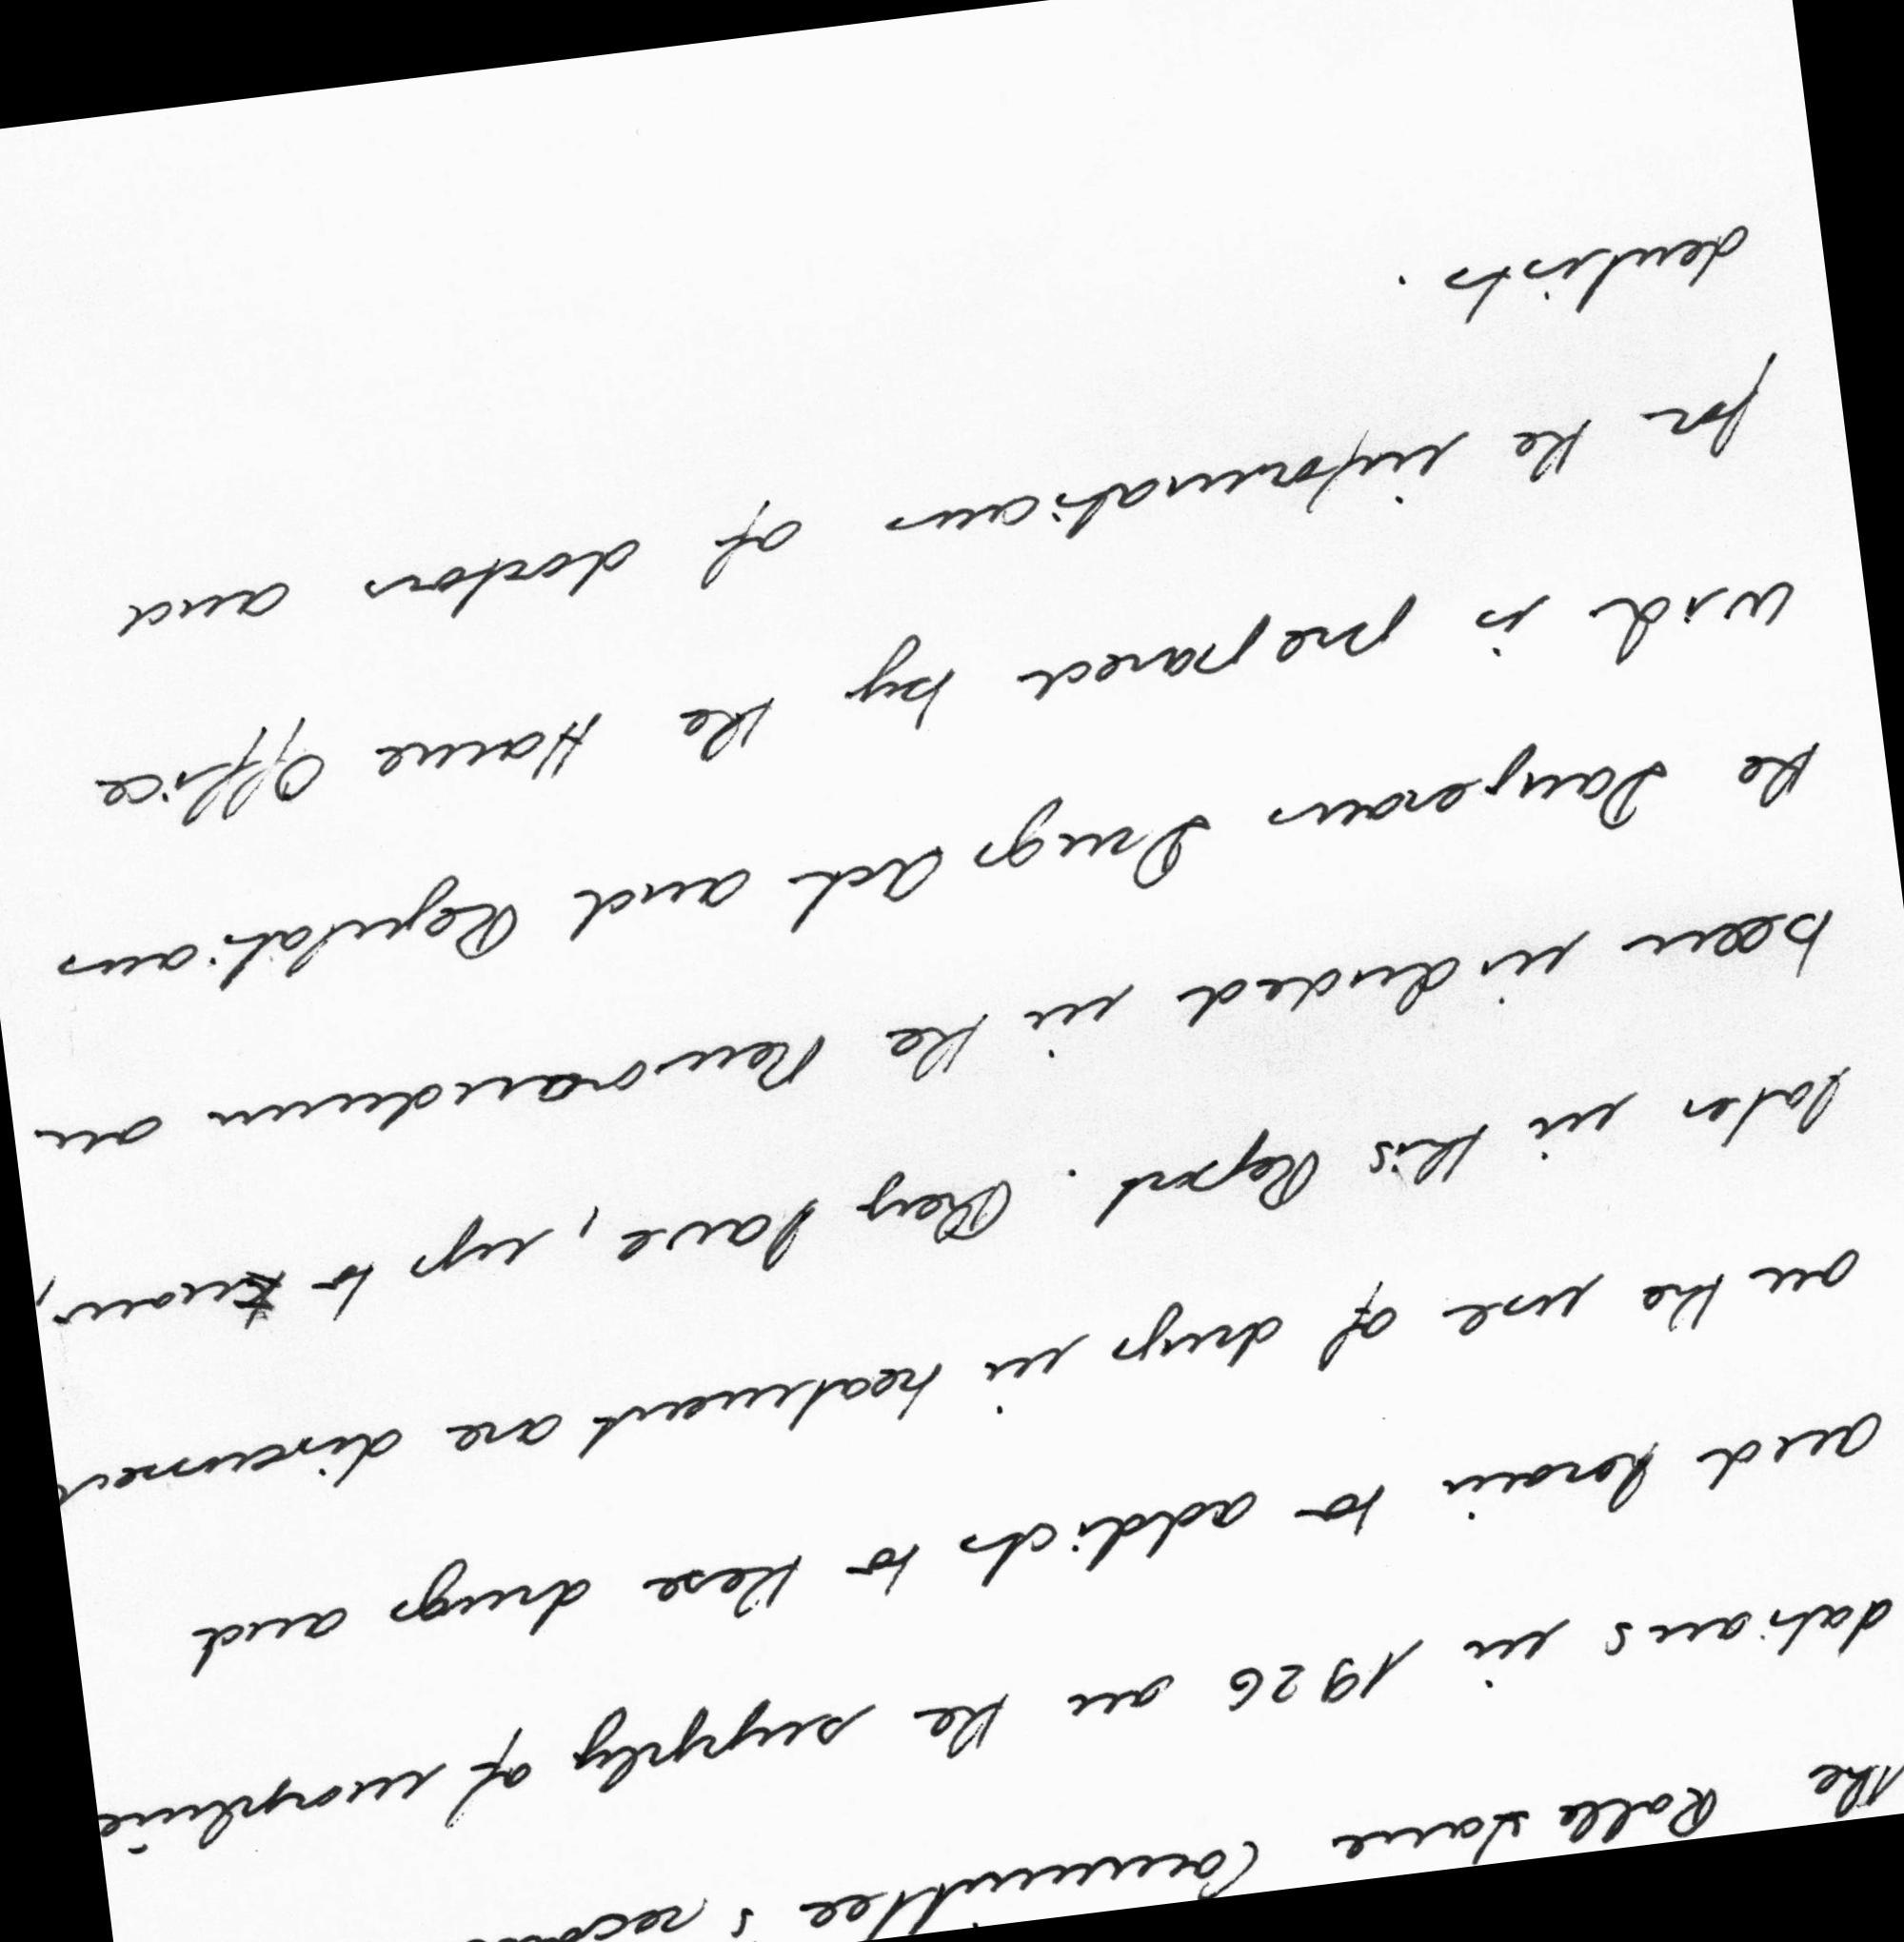 The Rolleston Committee's
dations in 1926 on the supply of morphine
and heroin to addicts to these drugs and
on the use of drugs in treatment are discussed
later in this Report. They have, up to know,
been included in the Memorandum on
the Dangerous Drugs Act and Regulations
wich is prepared by the Home Office
for the information of doctors and
dentists.